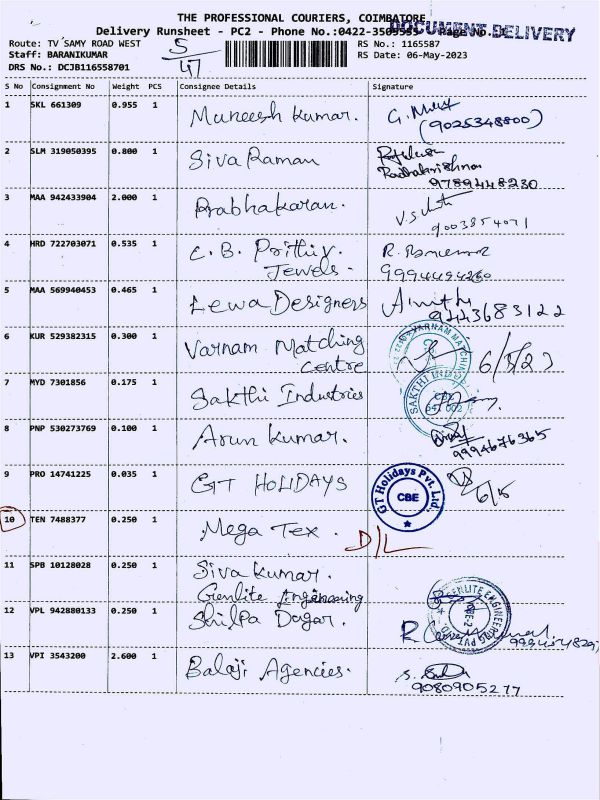 THE PROFESSIONAL COURIERS, COIMBATORE
DOCUMENT DELIVERY
Delivery Runsheet - PC2 - Phone No.:0422-3505555 Page No.1
Route: TV SAMY ROAD WEST
5/47
RS No.: 1165587
Staff: BARANIKUMAR
RS Date: 06-May-2023
DRS No.: DCJB116558701
S No Consignment No Weight PCS Consignee Details Signature
1 SKL 661309 0.955 1 Muneesh Kumar.
(9025348800)
2 SLM 319050395 0.800 1 Siva Raman
Radhakrishnan
9789448230
3 MAA 942433904 2.000 1 Prabhakaran.
9003854071
4 HRD 722703071 0.535 1 C. B. Prithvi.
Jewels.
9994494260
5 MAA 569940453 0.465 1 Lewa Designers
9443683122
6 KUR 529382315 0.300 1 Varnam Matching
Centre
6/5/23
7 MYD 7301856 0.175 1 Sakthi Industries
SAKTHI
8 PNP 530273769 0.100 1 Arun Kumar.
9994676365
9 PRO 14741225 0.035 1 GT HOLIDAYS
GT Holidays Pvt. Ltd.
CBE
6/5
10 TEN 7488377 0.250 1 Mega Tex.
D/L
11 SPB 10128028 0.250 1 Siva Kumar.
Genlite Engineering
12 VPL 942880133 0.250 1 Shilpa Dagar.
13 VPI 3543200 2.600 1 Balaji Agencies.
9080905277